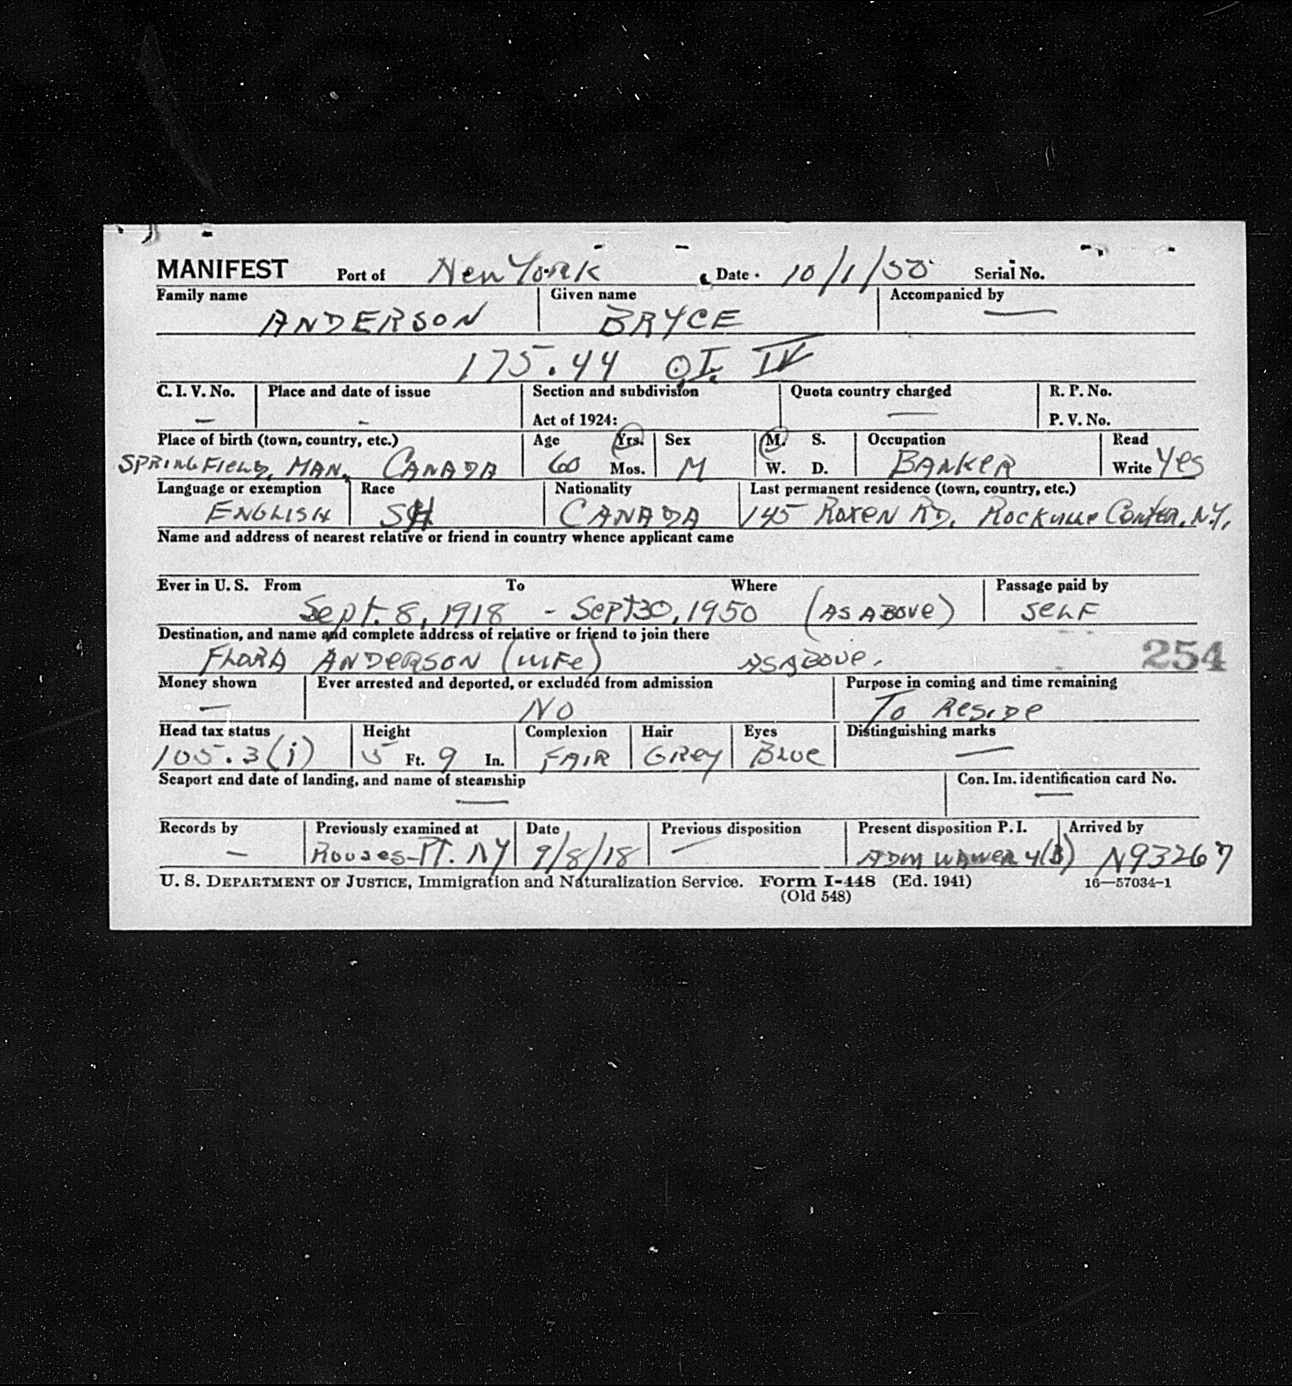 MANIFEST Port of New York Date 10/1/50 Serial No.
Family name Given name Accompanied by
ANDERSON BRYCE —
175.44 O.I. IV
C. I. V. No. Place and date of issue Section and subdivision Quota country charged R. P. No.
— - Act of 1924: — P. V. No.
Place of birth (town, country, etc.) Age Yrs. Sex M. S. Occupation Read
SPRINGFIELD, MAN, CANADA 60 Mos. M W. D. BANKER Write Yes
Language or exemption Race Nationality Last permanent residence (town, country, etc.)
ENGLISH SCH CANADA 145 ROXEN RD, ROCKVILLE CENTER, N.Y.
Name and address of nearest relative or friend in country whence applicant came
Ever in U. S. From To Where Passage paid by
Sept. 8, 1918 - SEPT 30, 1950 (AS ABOVE) SELF
Destination, and name and complete address of relative or friend to join there
FLORA ANDERSON (WIFE) AS ABOVE. 254
Money shown Ever arrested and deported, or excluded from admission Purpose in coming and time remaining
— NO To RESIDE
Head tax status Height Complexion Hair Eyes Distinguishing marks
105.3(j) 5 Ft. 9 In. FAIR GREY BLUE —
Seaport and date of landing, and name of steamship Con. Im. identification card No.
— —
Records by Previously examined at Date Previous disposition Present disposition P. I. Arrived by
— Rouses PT. NY 9/8/18 — ADM WAIVER 4(B) N93267
U. S. DEPARTMENT OF JUSTICE, Immigration and Naturalization Service. Form I-448 (Ed. 1941) 16—57034-1
(Old 548)